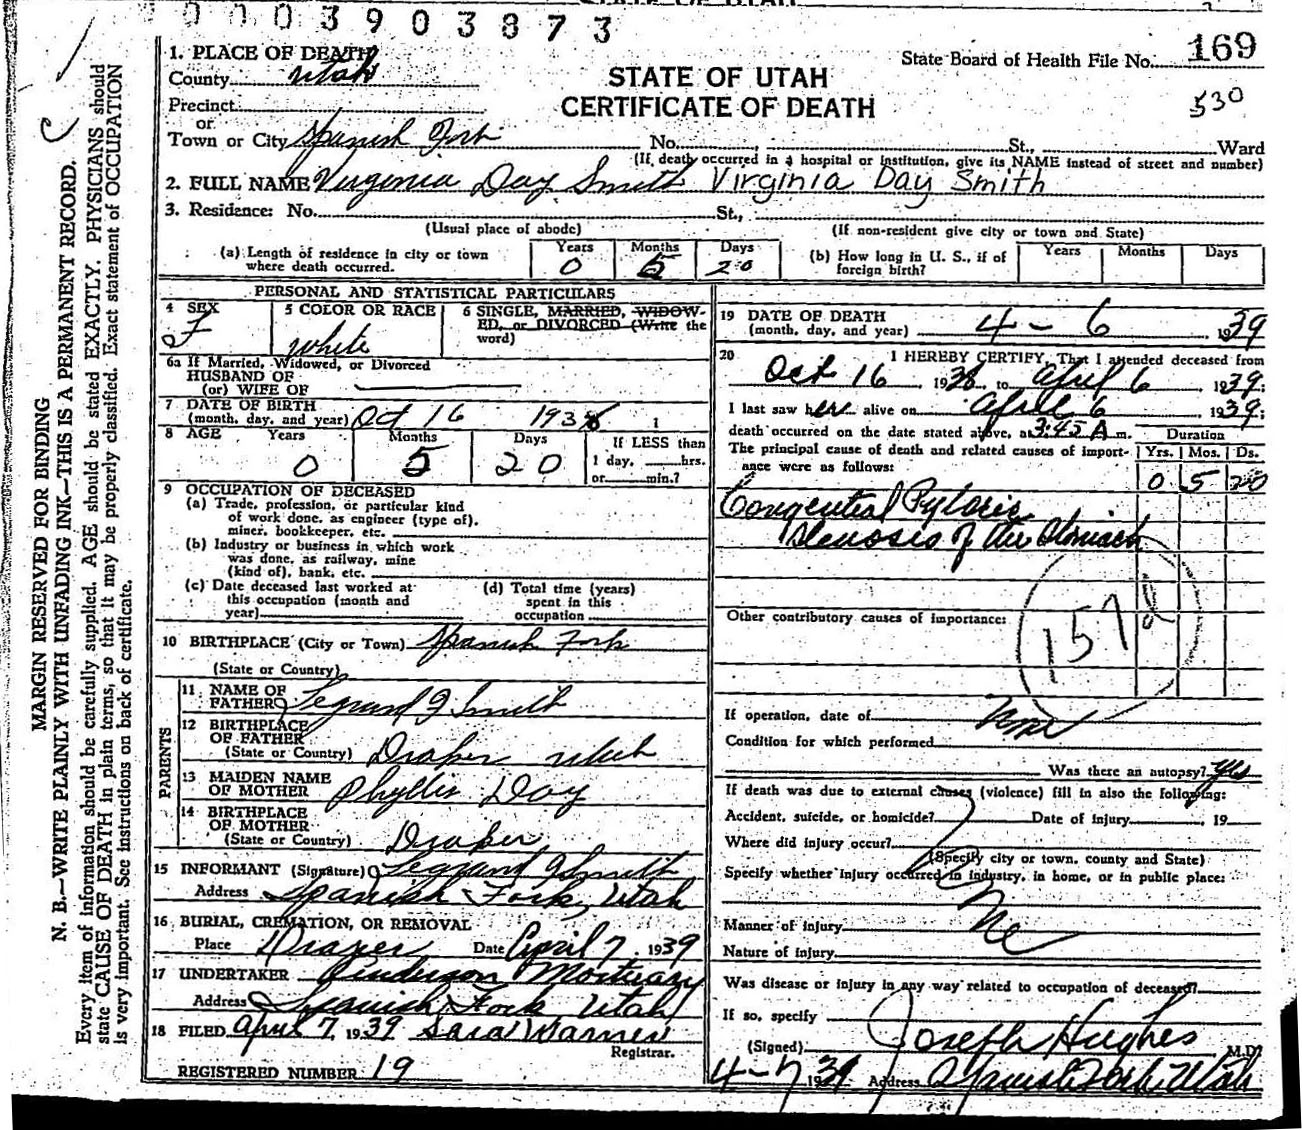 0003903873
1. PLACE OF DEATH
County Utah
State Board of Health File No. 169
STATE OF UTAH
CERTIFICATE OF DEATH
530
Precinct
or
Town or City Spanish Fork No. St., Ward
(If death occurred in a hospital or institution, give its NAME instead of street and number)
2. FULL NAME Virginia Day Smith Virginia Day Smith
3. Residence: No. St.,
(Usual place of abode) (If non-resident give city or town and State)
(a) Length of residence in city or town where death occurred. Years 0 Months 5 Days 20
(b) How long in U. S., if of foreign birth? Years Months Days
PERSONAL AND STATISTICAL PARTICULARS
4 SEX F
5 COLOR OR RACE White
6 SINGLE, MARRIED, WIDOWED, or DIVORCED (Write the word)
6a If Married, Widowed, or Divorced
HUSBAND OF
(or) WIFE OF
7 DATE OF BIRTH
(month, day, and year) Oct 16 1938
8 AGE Years 0 Months 5 Days 20 If LESS than 1 day, hrs. or min.?
9 OCCUPATION OF DECEASED
(a) Trade, profession, or particular kind
of work done, as engineer (type of),
miner, bookkeeper, etc.
(b) Industry or business in which work
was done, as railway, mine
(kind of), bank, etc.
(c) Date deceased last worked at
this occupation (month and
year)
(d) Total time (years)
spent in this
occupation
10 BIRTHPLACE (City or Town) Spanish Fork
(State or Country)
PARENTS
11 NAME OF
FATHER Legrand J Smith
12 BIRTHPLACE
OF FATHER
(State or Country) Draper Utah
13 MAIDEN NAME
OF MOTHER Phyllis Day
14 BIRTHPLACE
OF MOTHER
(State or Country) Draper
15 INFORMANT (Signature) Legrand J Smith
Address Spanish Fork, Utah
16 BURIAL, CREMATION, OR REMOVAL
Place Draper Date April 7 1939
17 UNDERTAKER Anderson Mortuary
Address Spanish Fork Utah
18 FILED April 7, 1939 Sara Warner
Registrar.
REGISTERED NUMBER 19
19 DATE OF DEATH
(month, day, and year) 4 - 6 1939
20 I HEREBY CERTIFY, That I attended deceased from
Oct 16 1938, to April 6 1939;
I last saw her alive on April 6 1939;
death occurred on the date stated above, at 3:45 A m.
Duration
The principal cause of death and related causes of importance were as follows:
Yrs. Mos. Ds.
0 5 20
Congenital Pyloric
Stenosis of the Stomach
Other contributory causes of importance:
157
If operation, date of None
Condition for which performed
Was there an autopsy? Yes
If death was due to external causes (violence) fill in also the following:
Accident, suicide, or homicide? Date of injury 19
Where did injury occur?
(Specify city or town, county and State)
Specify whether injury occurred in industry, in home, or in public place:
Manner of injury No
Nature of injury
Was disease or injury in any way related to occupation of deceased?
If so, specify
(Signed) Joseph Hughes M.D.
4-7 1939 Address Spanish Fork, Utah
MARGIN RESERVED FOR BINDING
N. B.—WRITE PLAINLY WITH UNFADING INK—THIS IS A PERMANENT RECORD.
Every item of information should be carefully supplied. AGE should be stated EXACTLY. PHYSICIANS should
state CAUSE OF DEATH in plain terms, so that it may be properly classified. Exact statement of OCCUPATION
is very important. See instructions on back of certificate.